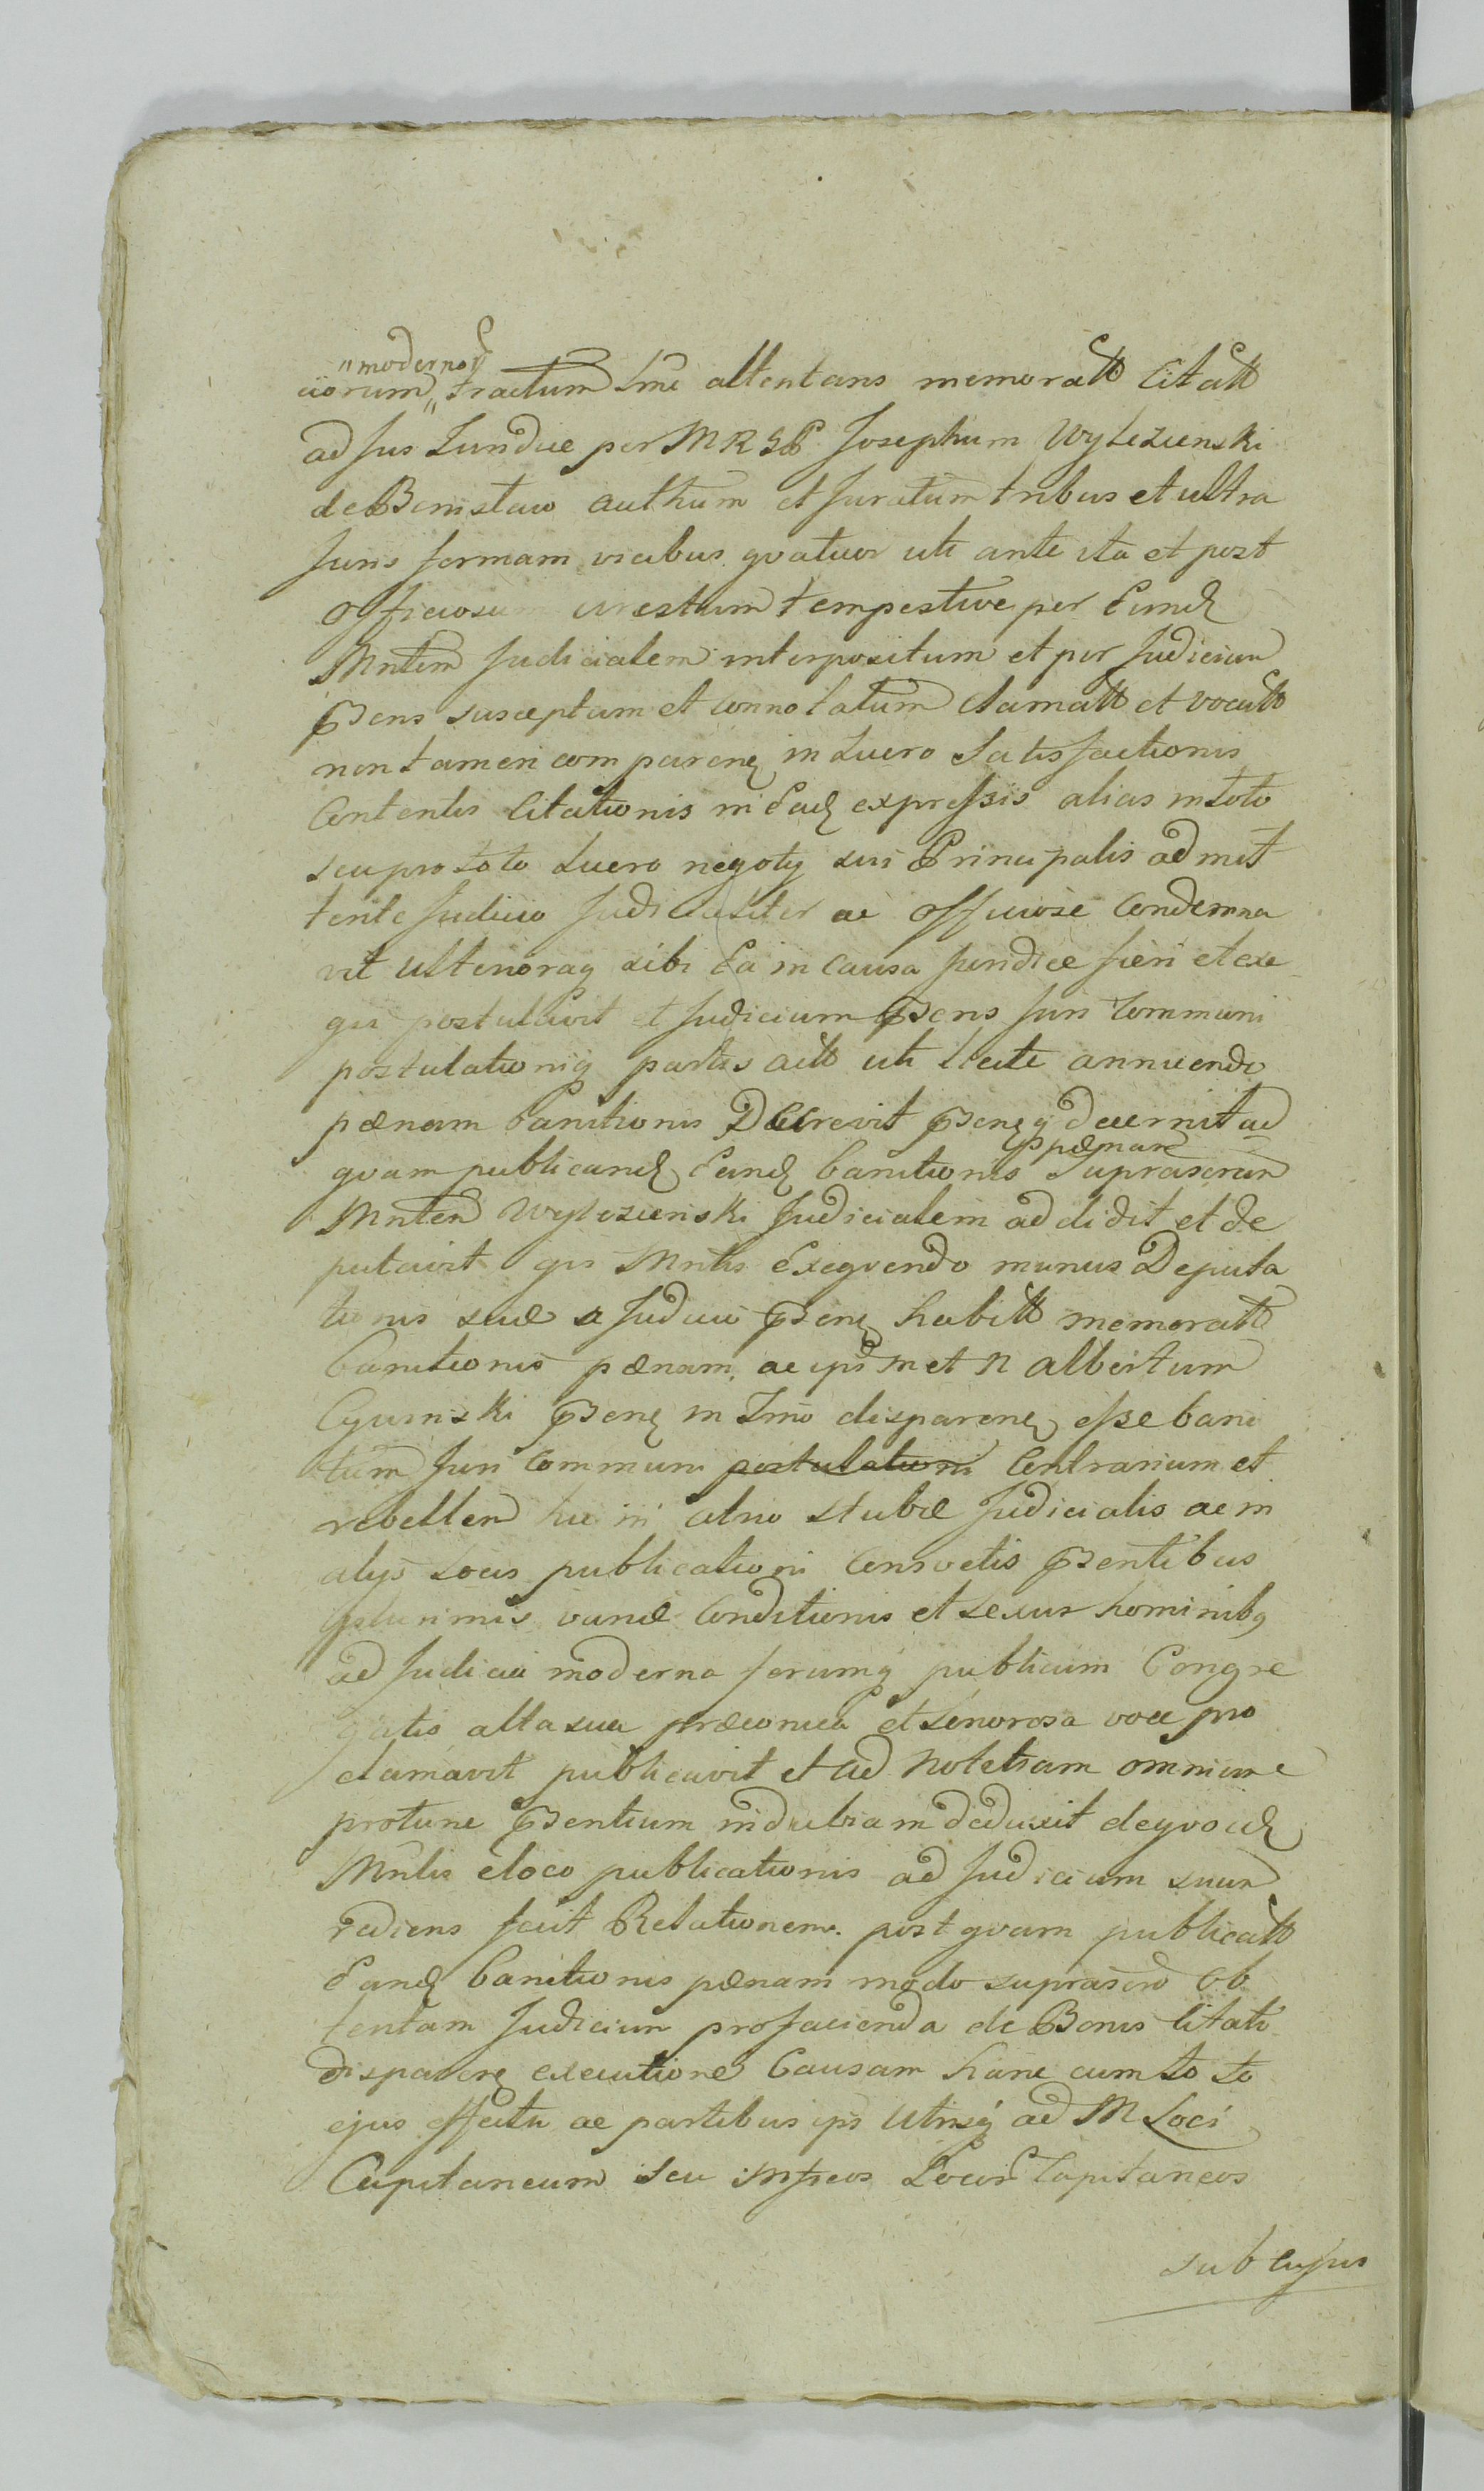 "modernor
ciorum„ tractum Lme attentans memoratt Citatt
ad Jus Juridice per M R G P. Josephum Wylezienski
de Benistaw authum et Juratum tribus et ultra
Juris formam vicibus qvatuor uti ante ita et post
officiosum arestum tempestive per Eund
Mntem Judicialem interpositum et per Judicium
Psens susceptum et Connotatum Clamatt et vocatt
non tamen comparen in Lucro Satisfactionis
Contentis Citationis in Ead expressis alias in toto
seu pro toto Lucro negoty sui Principalis admit
tente Judicio Judicialiter ac officiose Condemna
vit ulterioraq sibi Ea in Causa Juridice fieri et exe
qui postulavit et Judicium Psens Juri Communi
postulationiq partis actt uti licite annuendo
pænam banitionis Decrevit Psenq decernit ad
qvam publicand Eand banitionis pænam suprascrum
Mntem Wylezienski Judicialem addidit et de
putavit qui Mntis Exeqvendo munus Deputa
tionis suæ a Judicio Psen habitt memoratt
banitionis pænam, ac ips met N albertum
Cyumski Psen in Tmo disparen esse bani
tum Juri Communi postulationi Contrarium et
rebellem hic in atrio stubæ Judicialis ac in
alys Locis publicationi Consvetis Psentibus
plurimis variæ Conditionis et sexus hominibq
ad Judicia moderna forumq publicum Congre
gatis alta sua præconica et Sonorosa voce pro
clamavit publicavit et ad Notitiam omnium
protunc Psentium indubiam deduxit de qvo id
Mntis e loco publicationis ad Judicium suum
rediens fecit Relationem. post qvam publicatt
Eand banitionis pænam modo suprascro Ob
tentam Judicium pro facienda de Bonis Citati
disparen executione Causam hanc cum toto
ejus effectu ac partibus ips Utrisq ad M Loci
Capitaneum seu Mfficos Locor Capitaneos
sub cujus